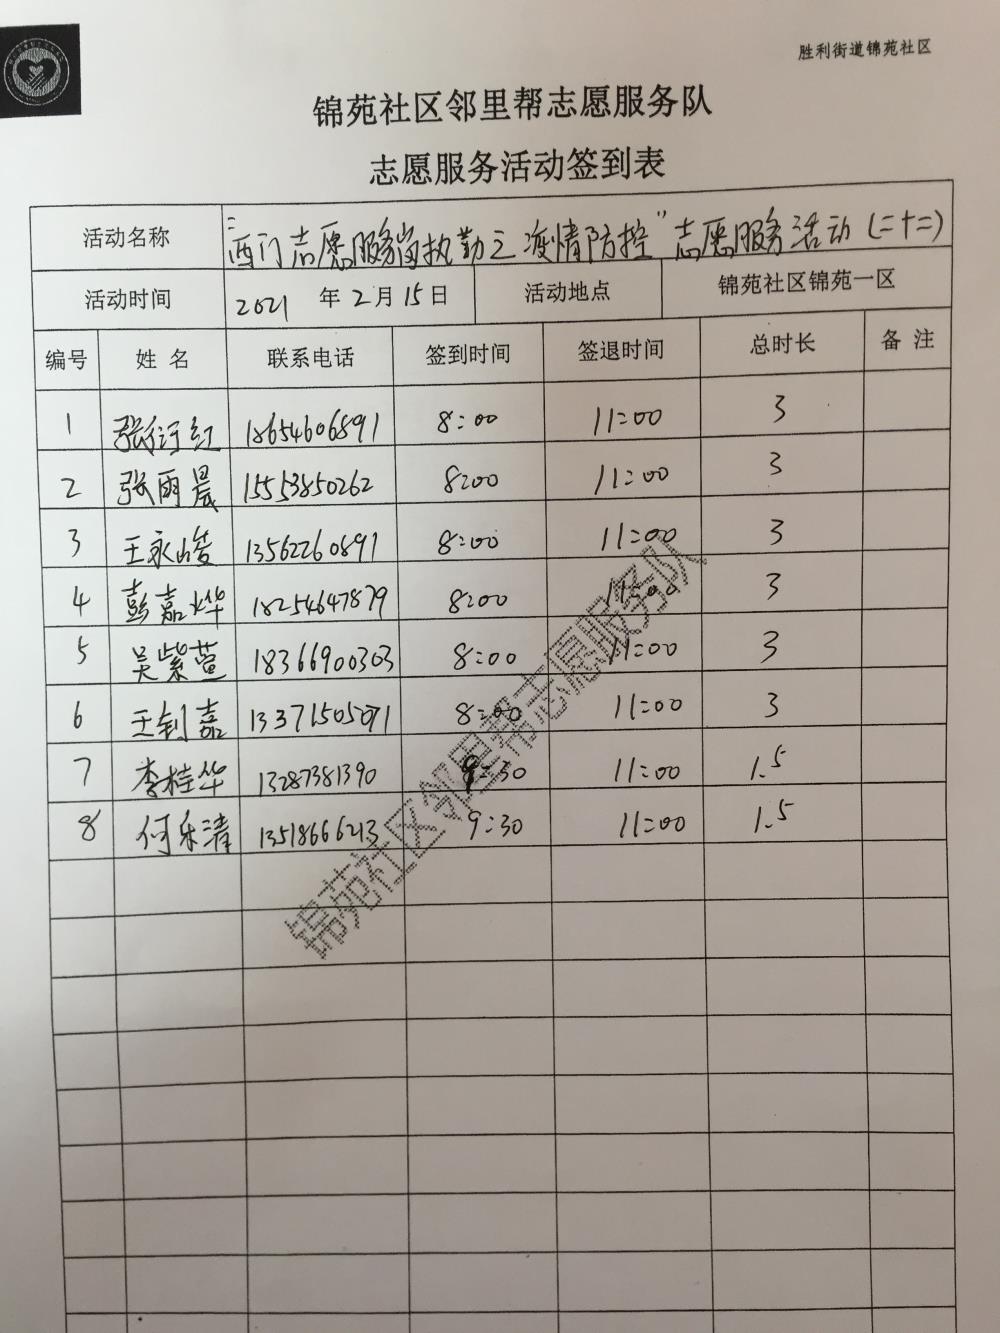 胜利街道锦苑社区
锦苑社区邻里帮志愿服务队
志愿服务活动签到表
活动名称 “西门志愿服务岗执勤之疫情防控”志愿服务活动(二十二)
活动时间 2021 年 2 月 15 日 活动地点 锦苑社区锦苑一区
编号 姓 名 联系电话 签到时间 签退时间 总时长 备 注
1 张衍红 18654606891 8:00 11:00 3
2 张雨晨 15553850262 8:00 11:00 3
3 王永峻 13562260891 8:00 11:00 3
4 彭嘉烨 18254647879 8:00 11:00 3
5 吴紫萱 18366900303 8:00 11:00 3
6 王钊嘉 13371505071 8:00 11:00 3
7 李桂华 13287381390 9:30 11:00 1.5
8 何乐清 13518666213 9:30 11:00 1.5
锦苑社区邻里帮志愿服务队